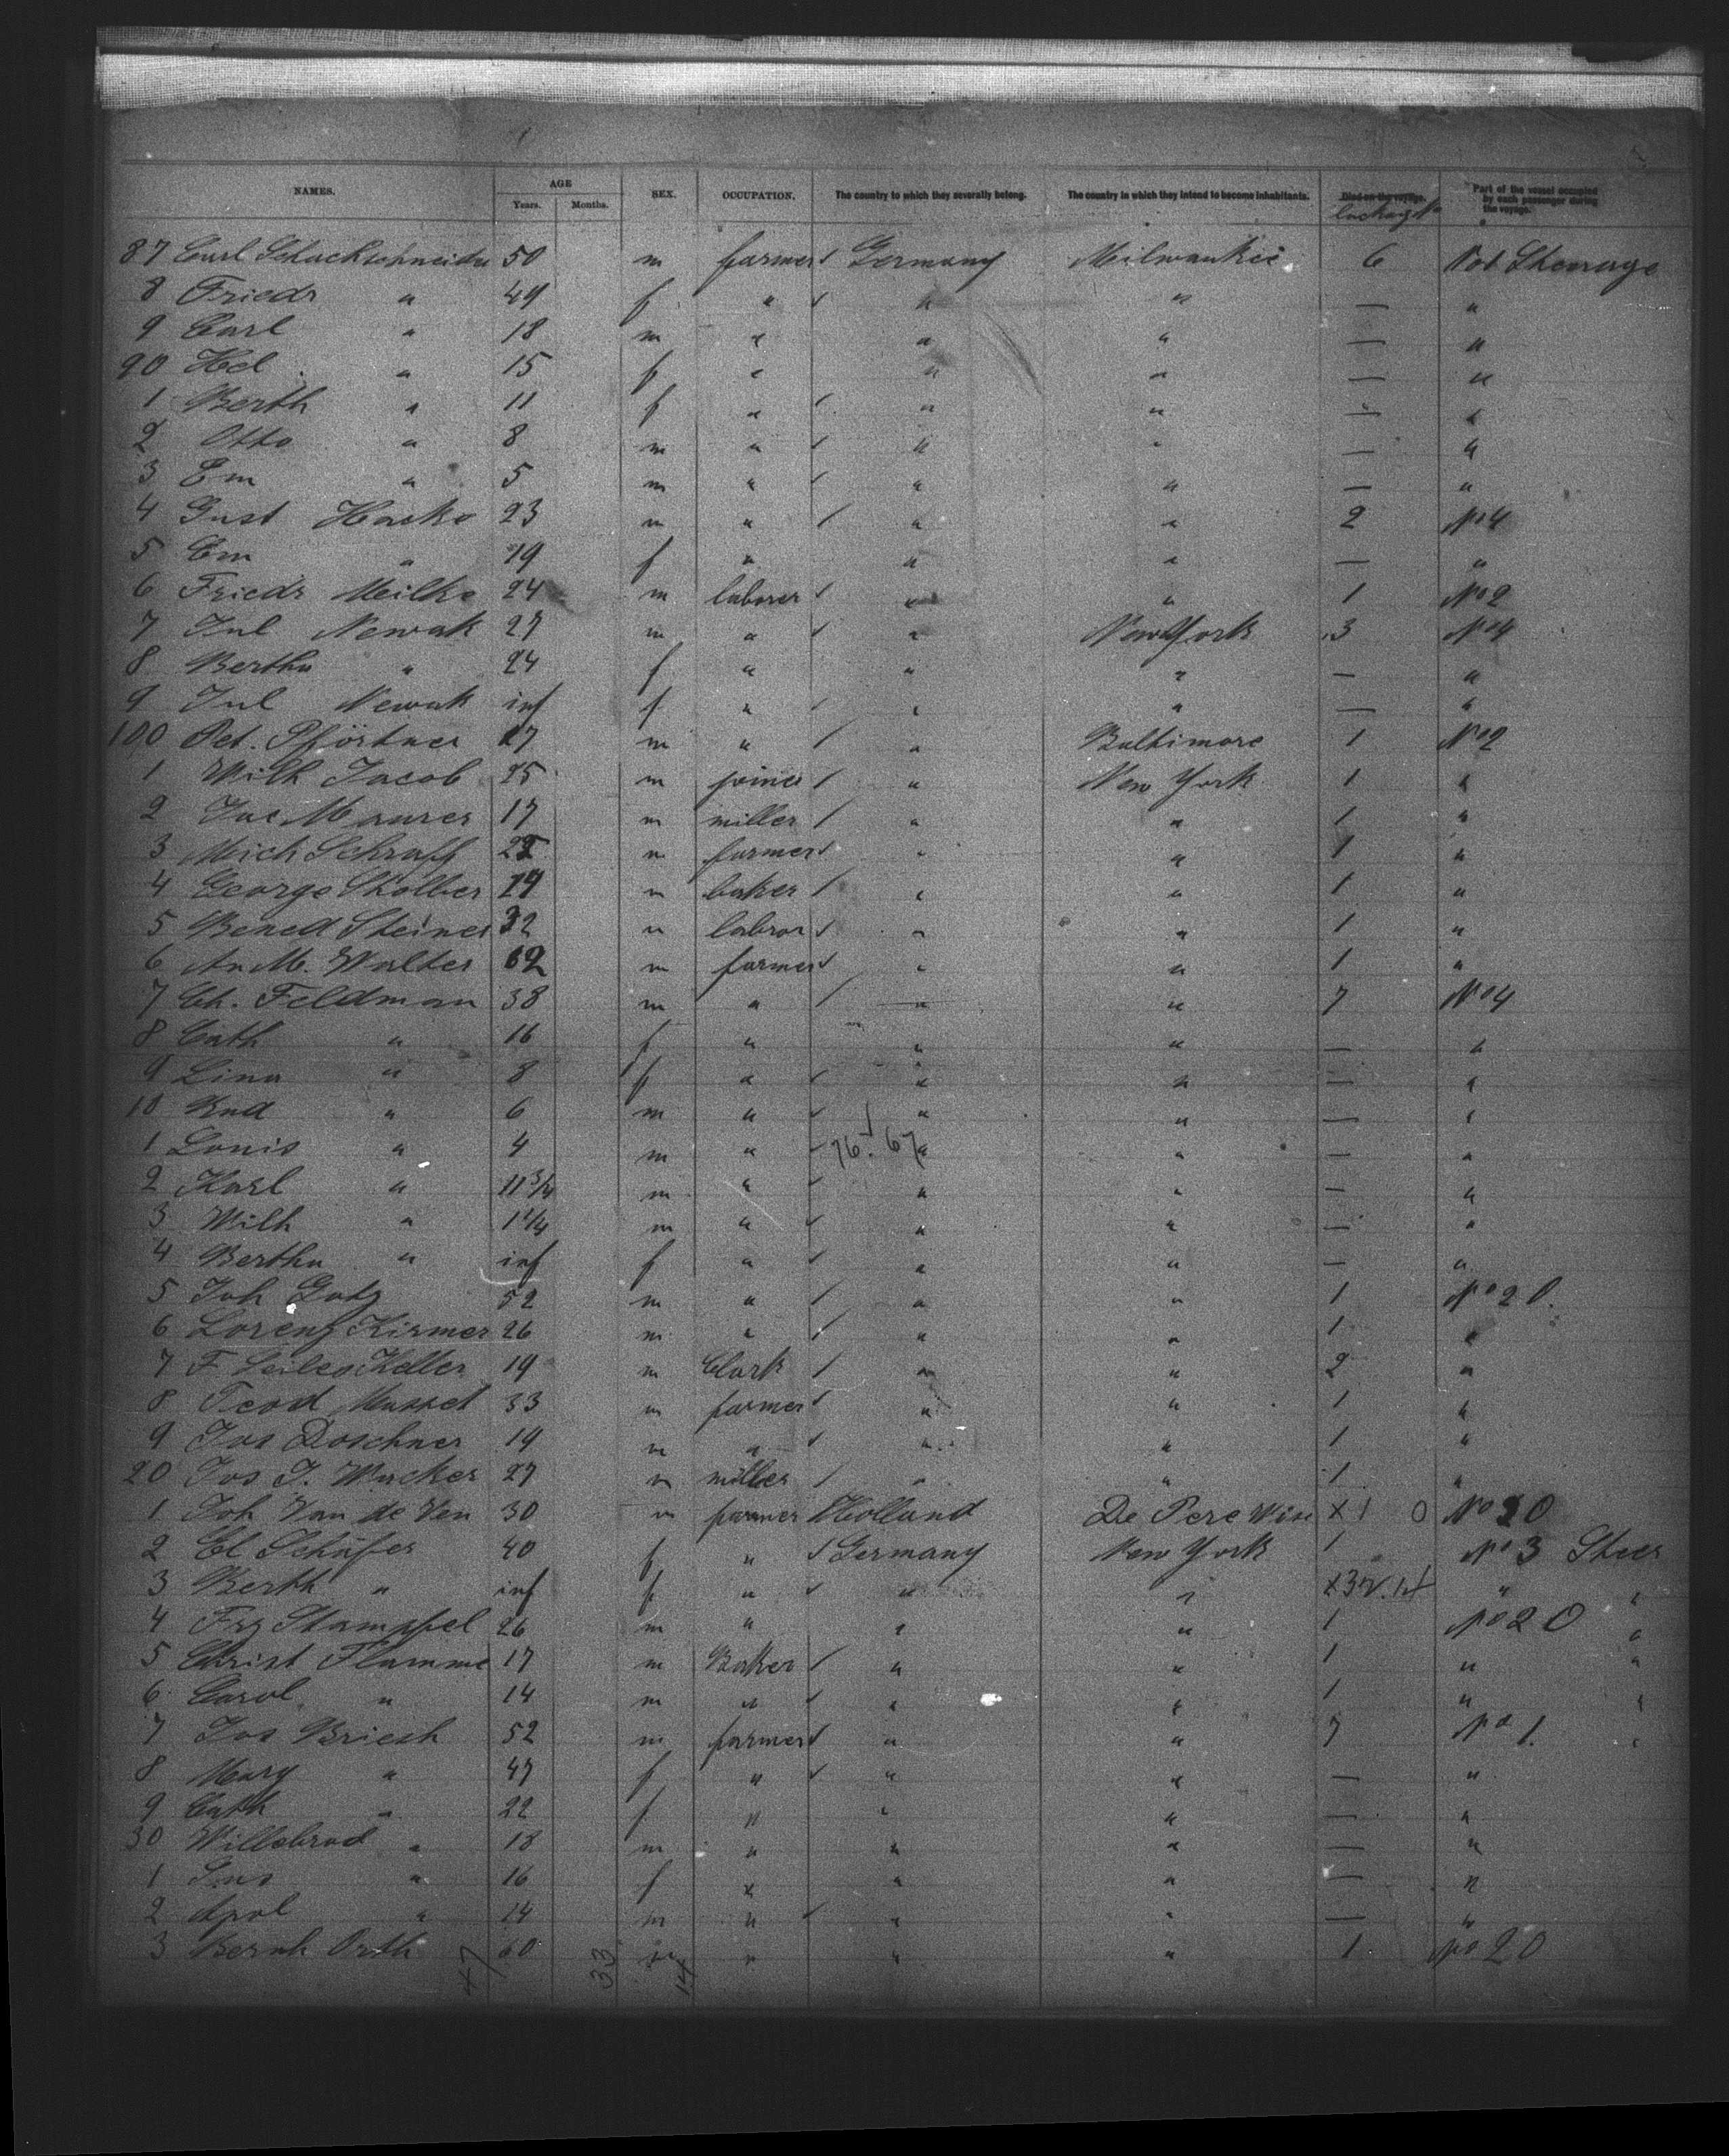 NAMES. AGE SEX. OCCUPATION. The country to which they severally belong. The country in which they intend to become inhabitants. Died on the voyage. Part of the vessel occupied by each passenger during the voyage.
Years. Months.
87 Carl Schackschneider 50 m farmer Germany Milwaukie 6 No1 Steerage
8 Friedr " 49 f " " " — "
9 Carl " 18 m " " " — "
90 Hel " 15 f " " " — "
1 Berth " 11 f " " " — "
2 Otto " 8 m " " " — "
3 Em " 5 m " " " — "
4 Gust Hacke 23 m " " " 2 No4
5 Em " 19 f " " " — "
6 Friedr Milke 24 m laborer " " 1 No2
7 Jul Newak 27 m " " New York 3 No4
8 Bertha " 24 f " " " — "
9 Jul Newak inf f " " " — "
100 Pet. Pförtner 27 m " " Baltimore 1 No2
1 Wilh Jacob 25 m joiner " New York 1 "
2 Jac Maurer 17 m miller " " 1 "
3 Mich Schraff m farmer " " 1 "
4 George m baker " " 1 "
5 Bened Steiner 32 m labror " " 1 "
6 An M. Walter 62 m farmer " " 1 "
7 Ch. Feldman 38 m " " " 7 No4
8 Cath " 16 f " " " — "
9 Lina " 8 f " " " — "
10 " 6 m " " " — "
1 Louis " 4 m " 76.67 " " — "
2 Karl " 11 3/4 m " " " — "
3 Wilh " 1 1/4 m " " " — "
4 Bertha " inf f " " " — "
5 Joh Gotz 52 m " " " 1 No 20.
6 Lorenz Kirmer 26 m " " " 1 "
7 F Keller 19 m Clark " " 2 "
8 Teod Musset 33 m farmer " " 1 "
9 Jos Doschner 19 m " " " 1 "
20 Jos J. Wacker 27 m miller " " 1 "
1 Joh Van de Ven 30 m farmer Holland De Pere Wisc X 1 0 No 20
2 El Schäfer 40 f " Germany New York 1 No 3 Steer
3 Berth " inf f " " " "
4 Frz Stampfel 26 m " " " 1 No 20 "
5 Christ Flamme 17 m Baker " " 1 " "
6 Carol " 14 m " " " 1 " "
7 Jos Briesh 52 m farmer " " 7 No 1. "
8 Mary " 47 f " " " — "
9 Cath " 22 f " " " — "
30 Willebrod " 18 m " " " — "
1 " 16 f " " " — "
2 Apol " 14 m " " " — "
3 Bernh Orth 60 m " " " 1 No 20
47 33 14